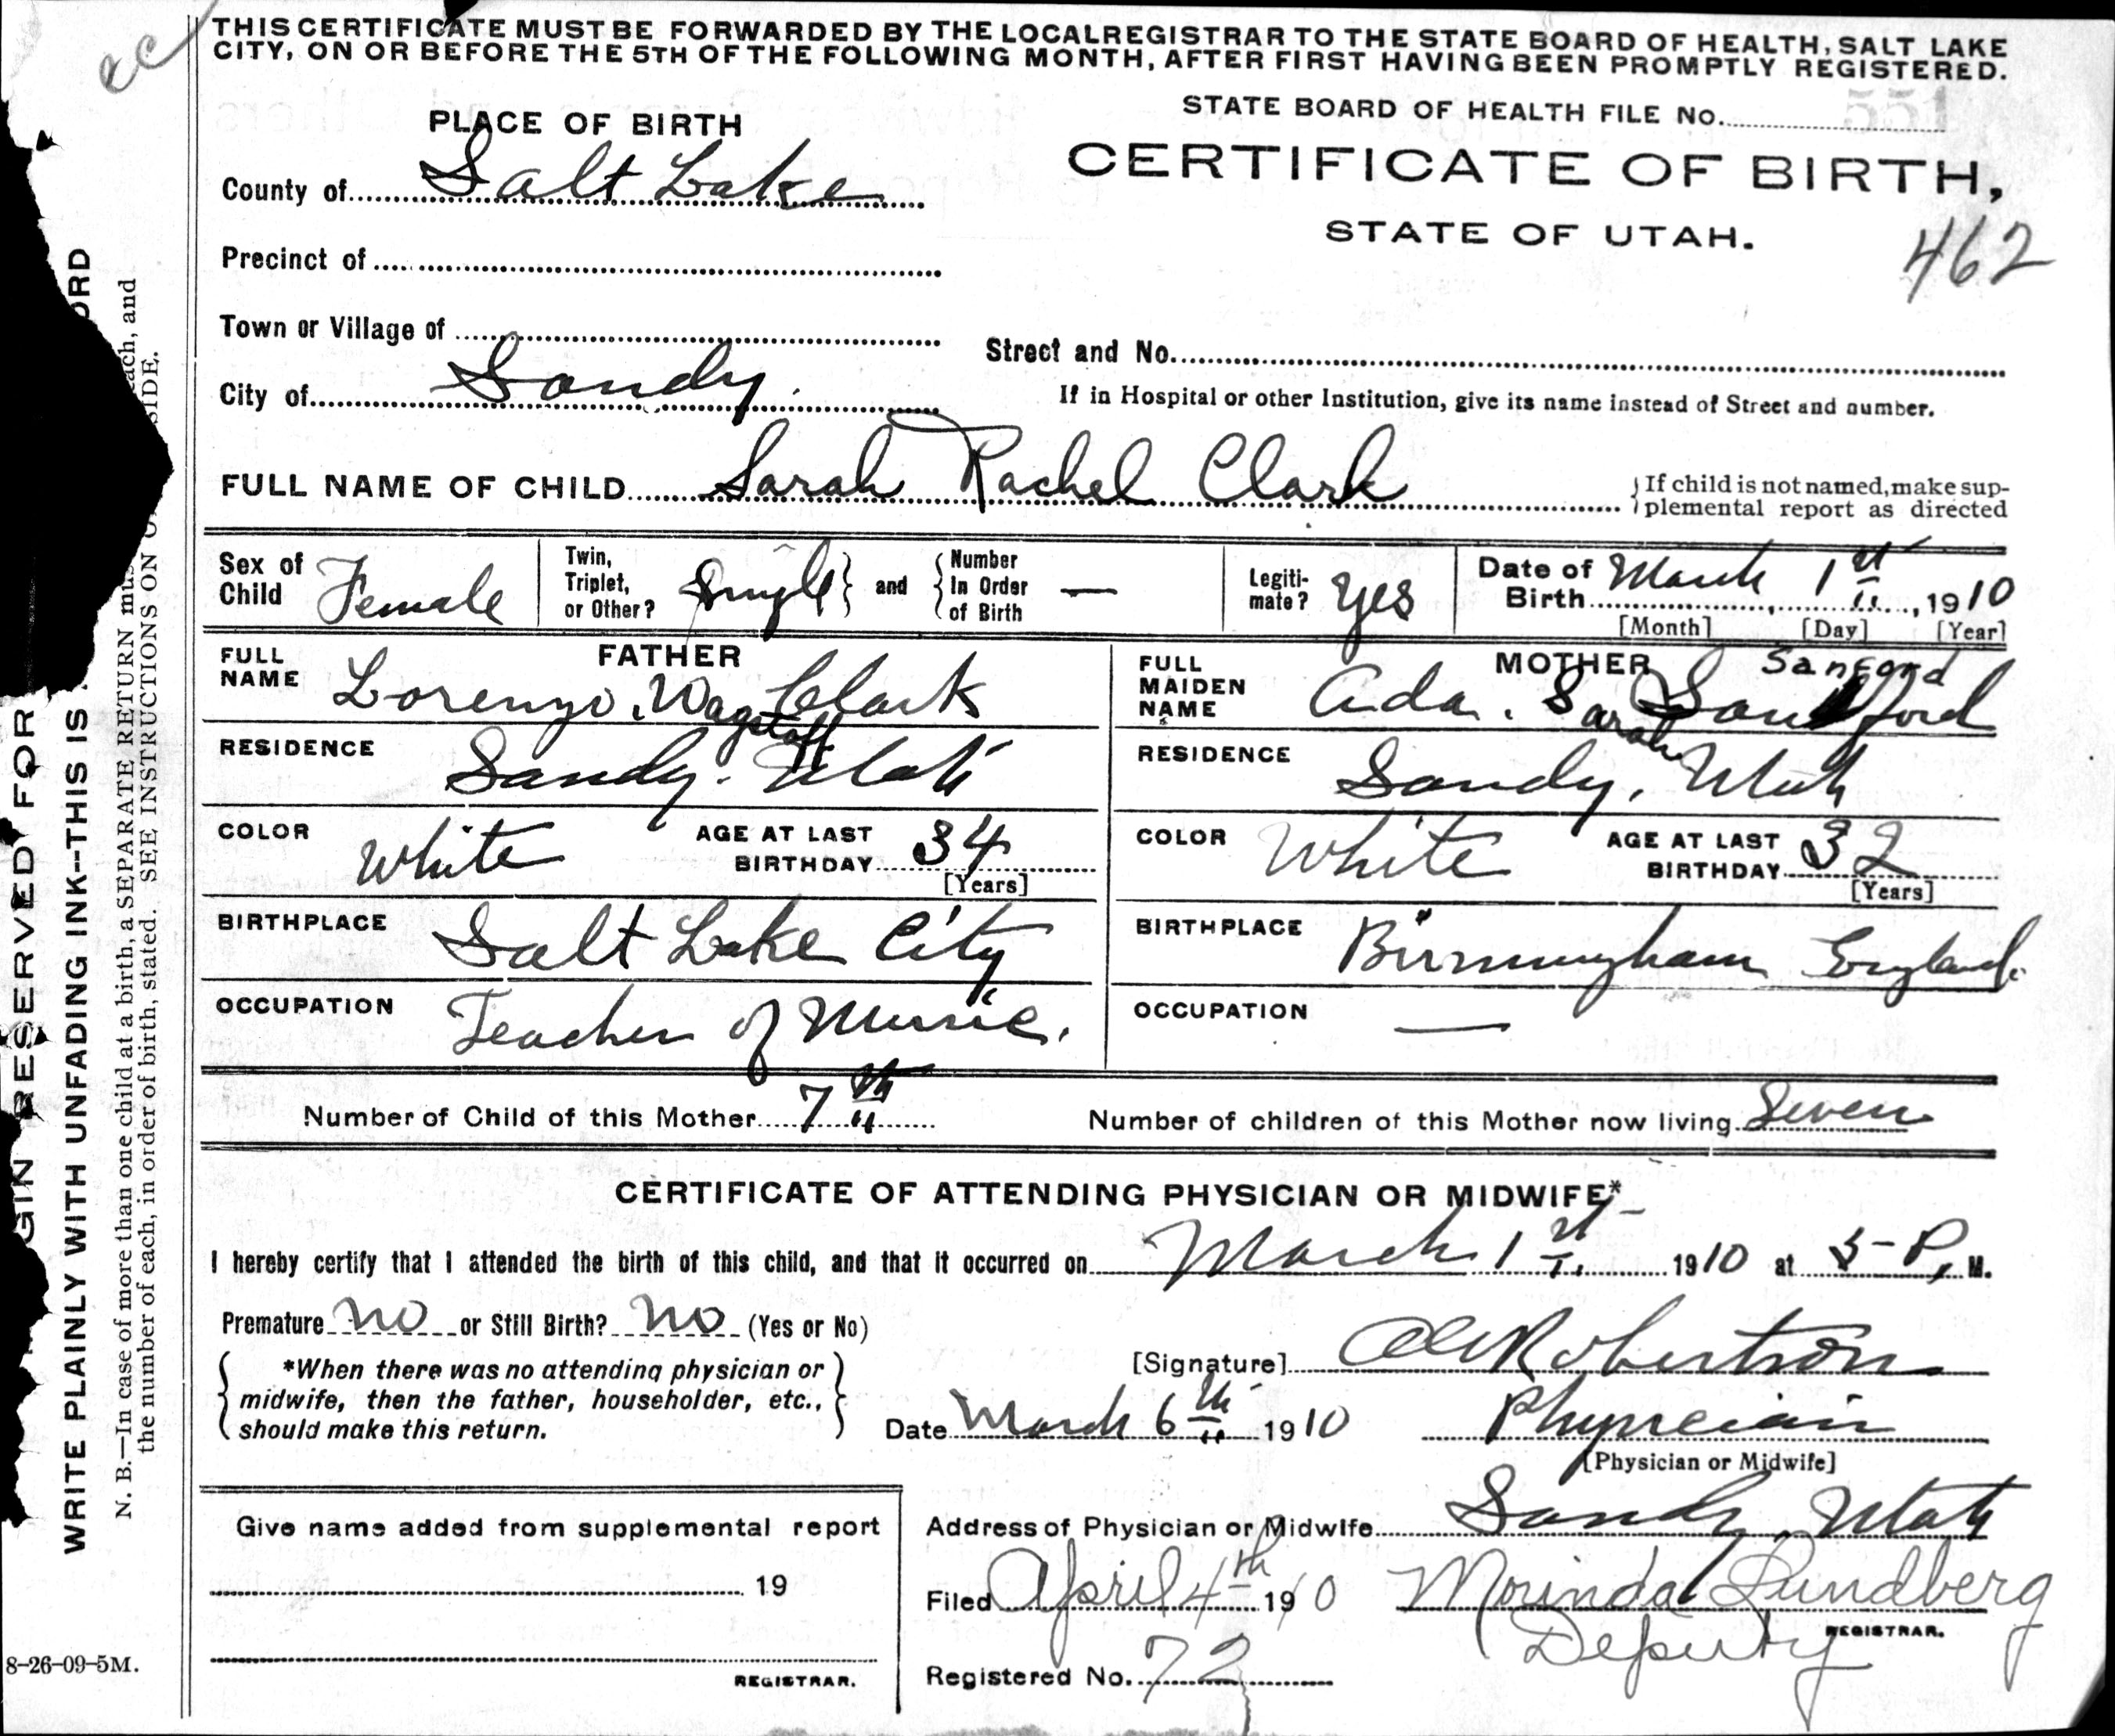 THIS CERTIFICATE MUST BE FORWARDED BY THE LOCAL REGISTRAR TO THE STATE BOARD OF HEALTH, SALT LAKE
CITY, ON OR BEFORE THE 5TH OF THE FOLLOWING MONTH, AFTER FIRST HAVING BEEN PROMPTLY REGISTERED.
PLACE OF BIRTH
County of Salt Lake
Precinct of
Town or Village of
City of Sandy
STATE BOARD OF HEALTH FILE NO.
CERTIFICATE OF BIRTH,
STATE OF UTAH.
462
Street and No.
If in Hospital or other Institution, give its name instead of Street and number.
FULL NAME OF CHILD Sarah Rachel Clark
If child is not named, make sup-
plemental report as directed
Sex of Child Female
Twin, Triplet, or Other? Single and Number In Order of Birth —
Legiti-mate? Yes
Date of Birth March 1st, 1910
[Month] [Day] [Year]
FATHER
FULL NAME Lorenzo Wagstaff Clark
RESIDENCE Sandy. Utah
COLOR White AGE AT LAST BIRTHDAY 34
[Years]
BIRTHPLACE Salt Lake City
OCCUPATION Teacher of Music.
MOTHER Sanford
FULL MAIDEN NAME Ada. Sarah Sandford
RESIDENCE Sandy, Utah
COLOR White AGE AT LAST BIRTHDAY 32
[Years]
BIRTHPLACE Birmingham England.
OCCUPATION —
Number of Child of this Mother 7th
Number of children of this Mother now living Seven
CERTIFICATE OF ATTENDING PHYSICIAN OR MIDWIFE*
I hereby certify that I attended the birth of this child, and that it occurred on March 1st 1910 at 5- P, M.
Premature no or Still Birth? no (Yes or No)
*When there was no attending physician or
midwife, then the father, householder, etc.,
should make this return.
[Signature] Robertson
Date March 6th 1910 Physician
[Physician or Midwife]
Give name added from supplemental report
19
REGISTRAR.
Address of Physician or Midwife Sandy, Utah
Filed April 4th 1910 Morinda Lundberg
Deputy REGISTRAR.
Registered No. 72
RESERVED FOR
WRITE PLAINLY WITH UNFADING INK--THIS IS
N. B.—In case of more than one child at a birth, a SEPARATE RETURN must each, and
the number of each, in order of birth, stated. SEE INSTRUCTIONS ON SIDE.
8-26-09-5M.